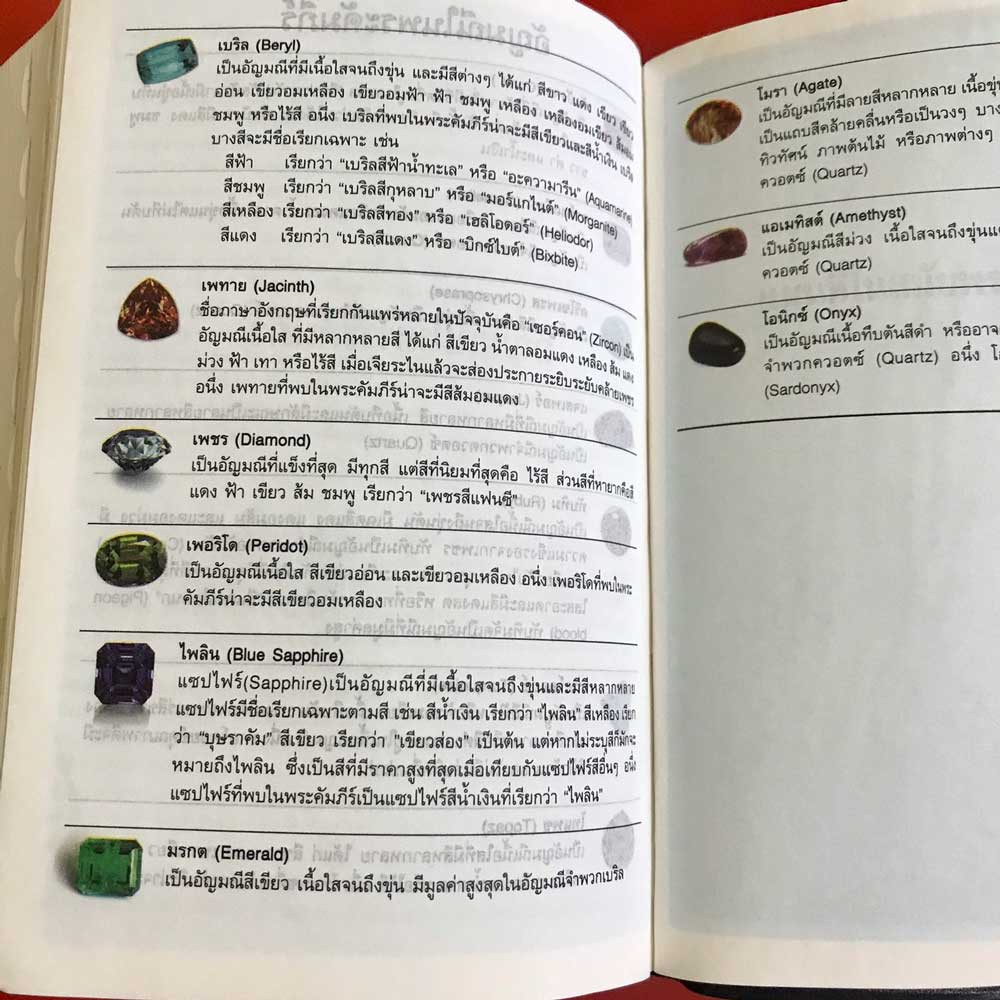 เบริล (Beryl)
เป็นอัญมณีที่มีเนื้อใสจนถึงขุ่น และมีสีต่างๆ ได้แก่ สีขาว แดง เขียว เขียว
อ่อน เขียวอมเหลือง เขียวอมฟ้า ฟ้า ชมพู เหลือง เหลืองอมเขียว ส้มอม
ชมพู หรือไร้สี อนึ่ง เบริลที่พบในพระคัมภีร์น่าจะมีสีเขียวและสีน้ำเงิน เบริล
บางสีจะมีชื่อเรียกเฉพาะ เช่น
สีฟ้า เรียกว่า “เบริลสีฟ้าน้ำทะเล” หรือ “อะความารีน” (Aquamarine)
สีชมพู เรียกว่า “เบริลสีกุหลาบ” หรือ “มอร์แกไนต์” (Morganite)
สีเหลือง เรียกว่า “เบริลสีทอง” หรือ “เฮลิโอดอร์” (Heliodor)
สีแดง เรียกว่า “เบริลสีแดง” หรือ “บิกซ์ไบต์” (Bixbite)
เพทาย (Jacinth)
ชื่อภาษาอังกฤษที่เรียกกันแพร่หลายในปัจจุบันคือ “เซอร์คอน” (Zircon) เป็น
อัญมณีเนื้อใส ที่มีหลากหลายสี ได้แก่ สีเขียว น้ำตาลอมแดง เหลือง ส้ม แดง
ม่วง ฟ้า เทา หรือไร้สี เมื่อเจียระไนแล้วจะส่องประกายระยิบระยับคล้ายเพชร
อนึ่ง เพทายที่พบในพระคัมภีร์น่าจะมีสีส้มอมแดง
เพชร (Diamond)
เป็นอัญมณีที่แข็งที่สุด มีทุกสี แต่สีที่นิยมที่สุดคือ ไร้สี ส่วนสีที่หายากคือสี
แดง ฟ้า เขียว ส้ม ชมพู เรียกว่า “เพชรสีแฟนซี”
เพอริโด (Peridot)
เป็นอัญมณีเนื้อใส สีเขียวอ่อน และเขียวอมเหลือง อนึ่ง เพอริโดที่พบในพระ
คัมภีร์น่าจะมีสีเขียวอมเหลือง
ไพลิน (Blue Sapphire)
แซปไฟร์(Sapphire)เป็นอัญมณีที่มีเนื้อใสจนถึงขุ่นและมีสีหลากหลาย
แซปไฟร์มีชื่อเรียกเฉพาะตามสี เช่น สีน้ำเงิน เรียกว่า “ไพลิน” สีเหลือง เรียก
ว่า “บุษราคัม” สีเขียว เรียกว่า "เขียวส่อง" เป็นต้น แต่หากไม่ระบุสีก็มักจะ
หมายถึงไพลิน ซึ่งเป็นสีที่มีราคาสูงที่สุดเมื่อเทียบกับแซปไฟร์สีอื่นๆ อนึ่ง
แซปไฟร์ที่พบในพระคัมภีร์เป็นแซปไฟร์สีน้ำเงินที่เรียกว่า “ไพลิน”
มรกต (Emerald)
เป็นอัญมณีสีเขียว เนื้อใสจนถึงขุ่น มีมูลค่าสูงสุดในอัญมณีจำพวกเบริล
โมรา (Agate)
เป็นอัญมณีที่มีลายสีหลากหลาย เนื้อขุ่น
เป็นแถบสีคล้ายคลื่นหรือเป็นวงๆ บาง
ทิวทัศน์ ภาพต้นไม้ หรือภาพต่างๆ
ควอตซ์ (Quartz)
แอเมทิสต์ (Amethyst)
เป็นอัญมณีสีม่วง เนื้อใสจนถึงขุ่น
ควอตซ์ (Quartz)
โอนิกซ์ (Onyx)
เป็นอัญมณีเนื้อทึบตันสีดำ หรืออาจ
จำพวกควอตซ์ (Quartz) อนึ่ง
(Sardonyx)